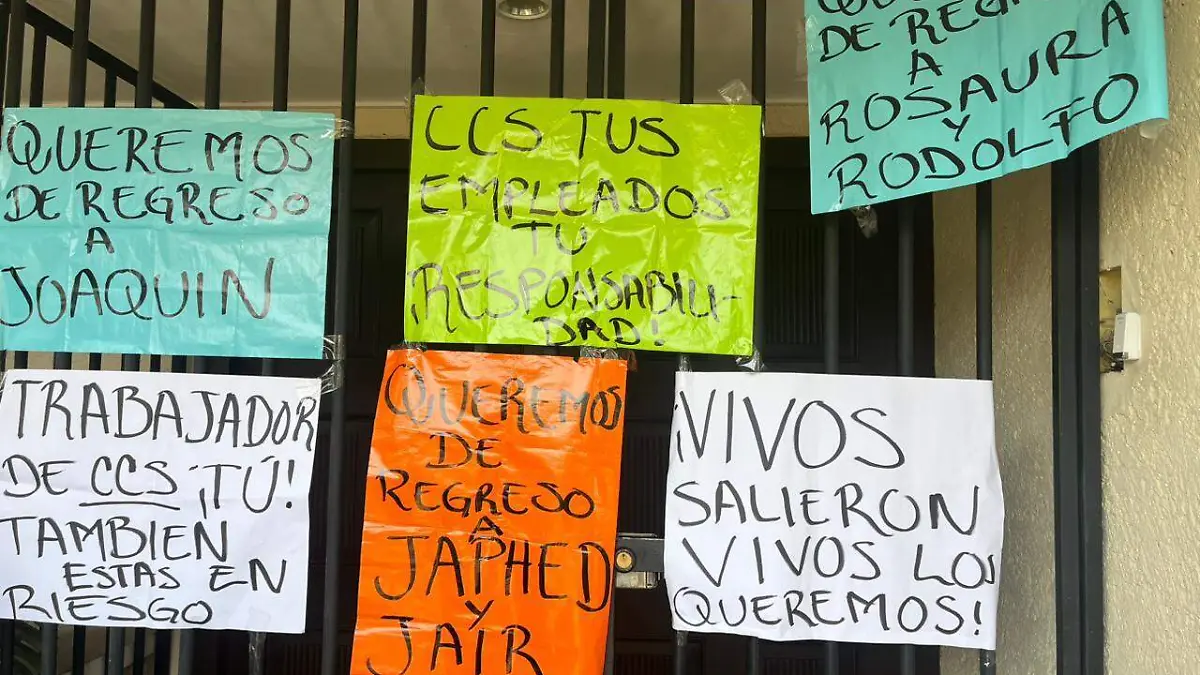 QUEREMOS
DE REGRESO
A
JOAQUIN
CCS TUS
EMPLEADOS
TU
¡RESPONSABILI-
DAD!
DE REGRESO
A
ROSAURA
Y
RODOLFO
TRABAJADOR
DE CCS ¡TÚ!
TAMBIEN
ESTAS EN
RIESGO
QUEREMOS
DE
REGRESO
A
JAPHED
Y
JAIR
¡VIVOS
SALIERON
VIVOS LOS
QUEREMOS!